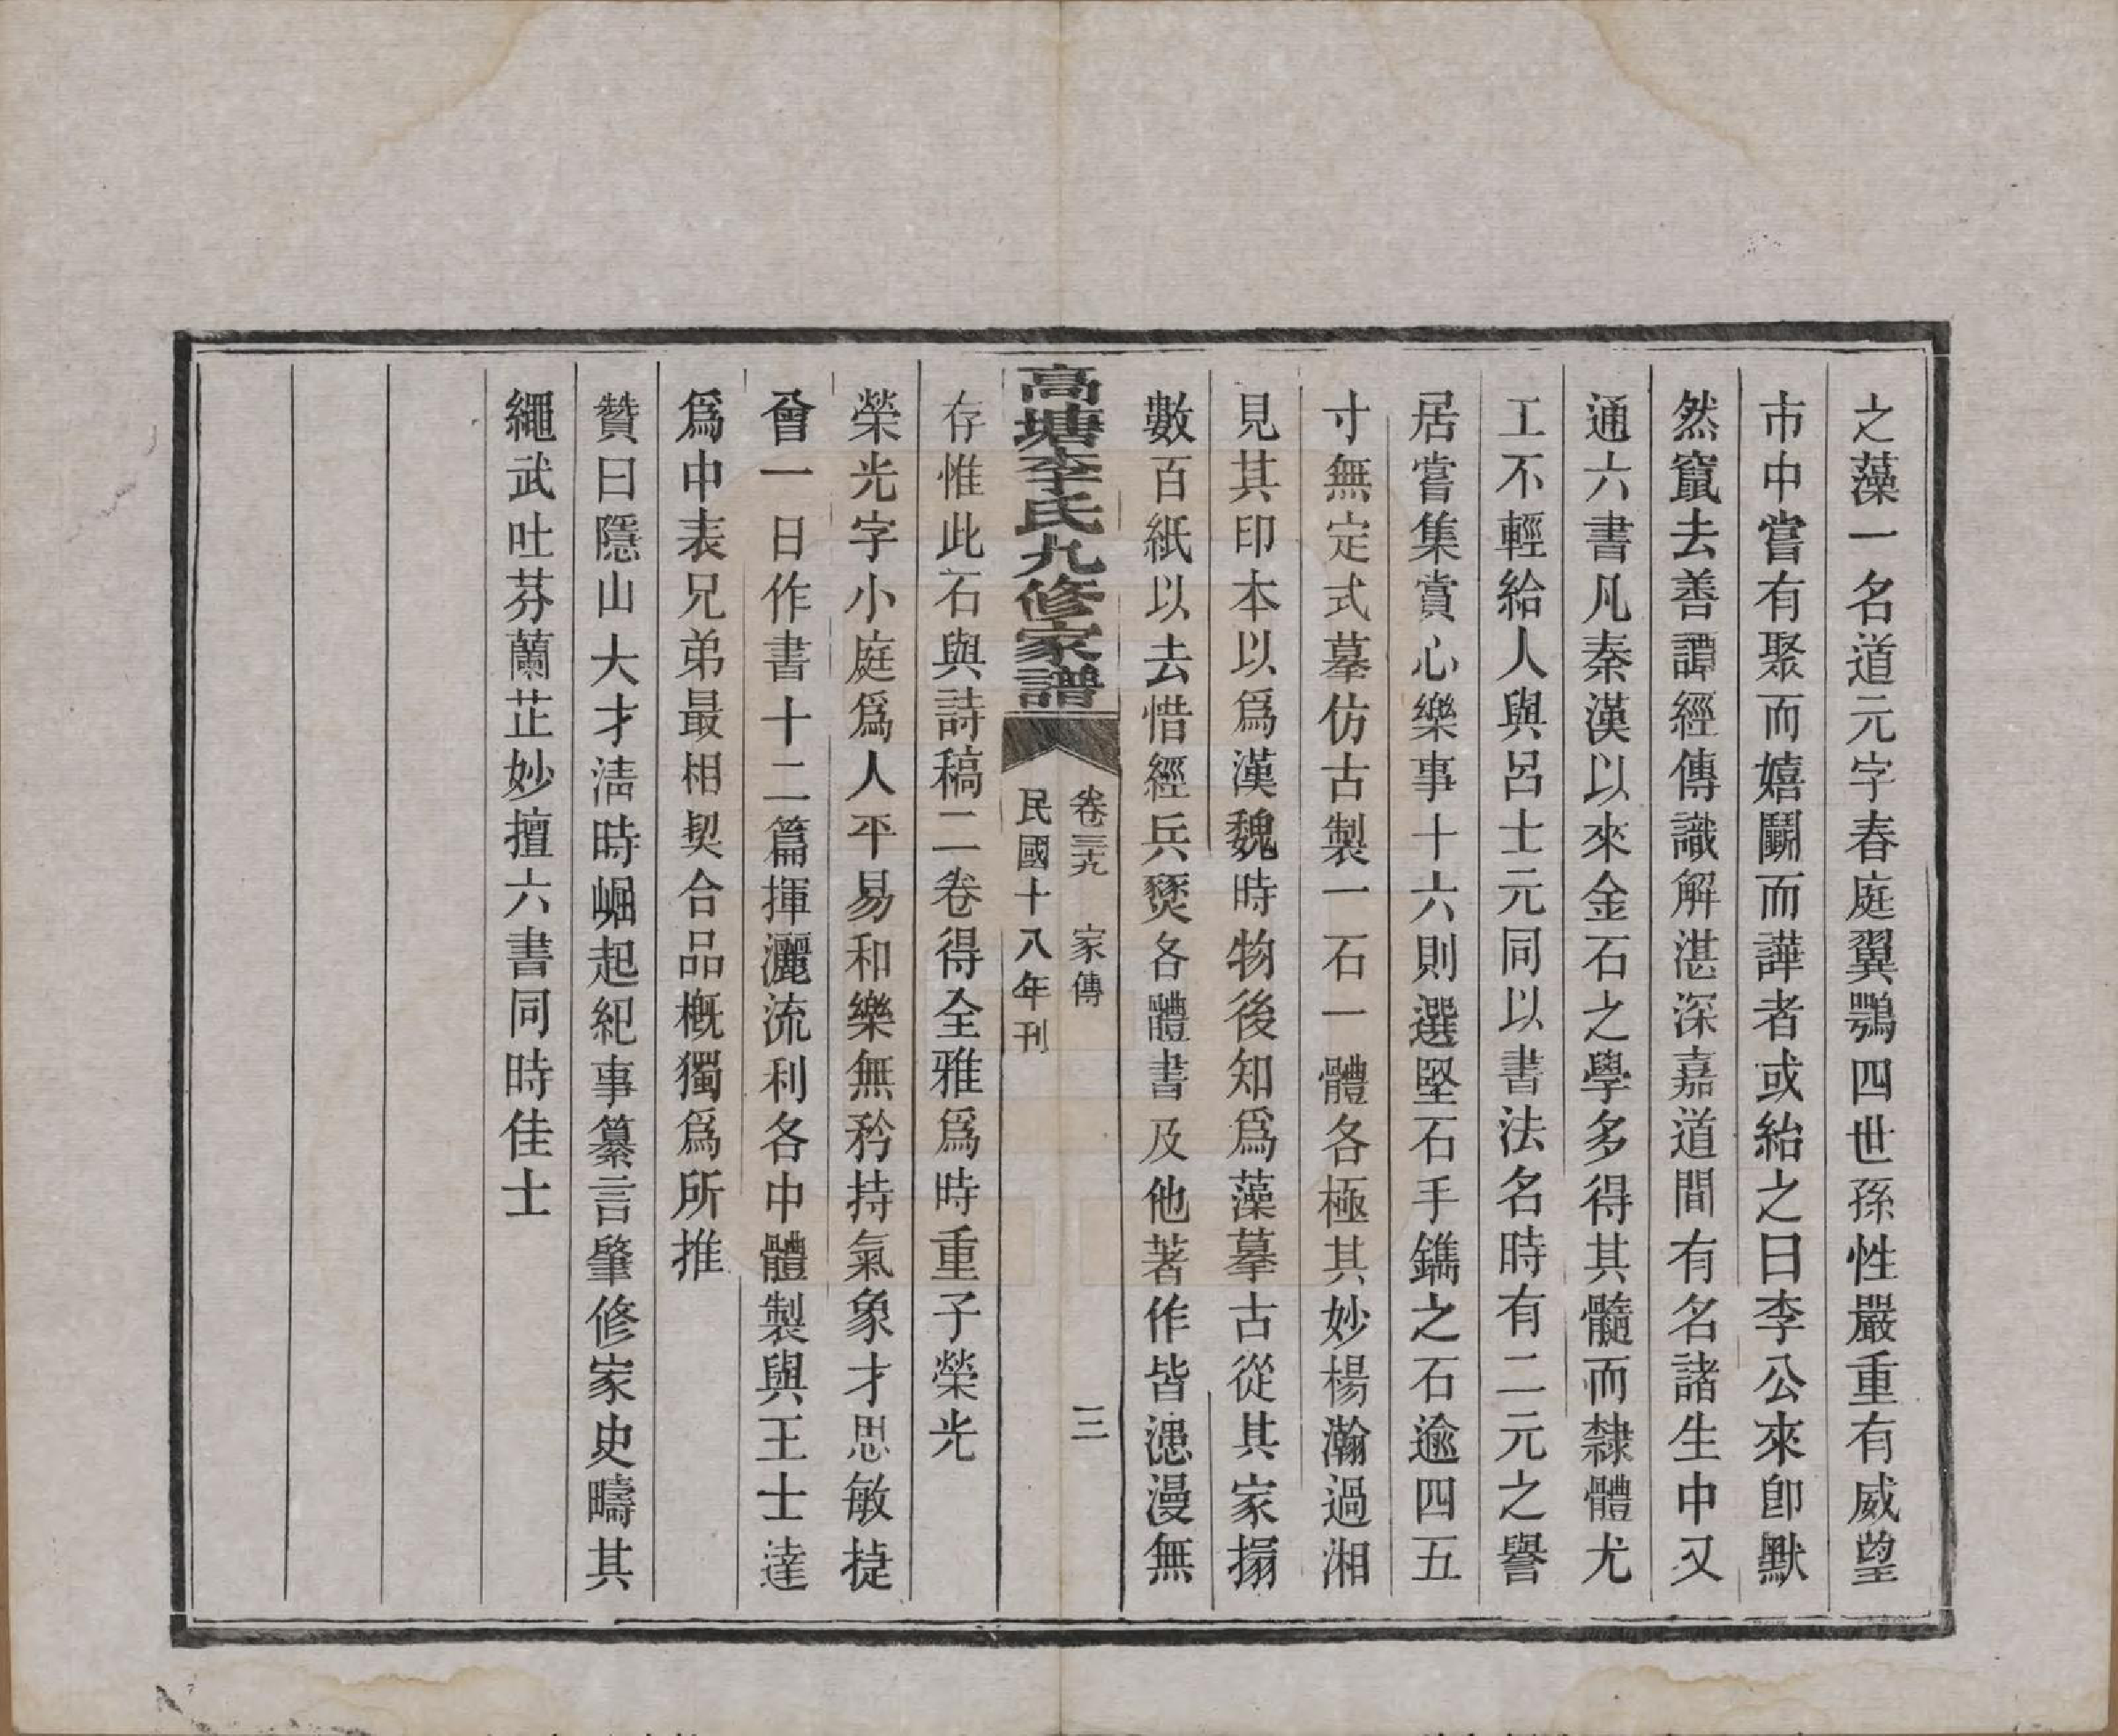 之藻一名道元字春庭翼鶚四世孫性嚴重有威望
市中嘗有聚而嬉鬭而譁者或紿之曰李公來卽默
然竄去善譚經傳識解湛深嘉道間有名諸生中又
通六書凡秦漢以來金石之學多得其髓而隸體尤
工不輕給人與呂士元同以書法名時有二元之譽
居嘗集賞心樂事十六則選堅石手鐫之石逾四五
寸無定式摹仿古製一石一體各極其妙楊瀚過湘
見其印本以爲漢魏時物後知爲藻摹古從其家搨
數百紙以去惜經兵燹各體書及他著作皆漶漫無
高塘李氏九修家譜
卷三九 家傳 三
民國十八年刊
存惟此石與詩稿二卷得全雅爲時重子榮光
榮光字小庭爲人平易和樂無矜持氣象才思敏捷
嘗一日作書十二篇揮灑流利各中體製與王士達
爲中表兄弟最相契合品概獨爲所推
贊曰隱山大才淸時崛起紀事纂言肇修家史疇其
繩武吐芬蘭芷妙擅六書同時佳士